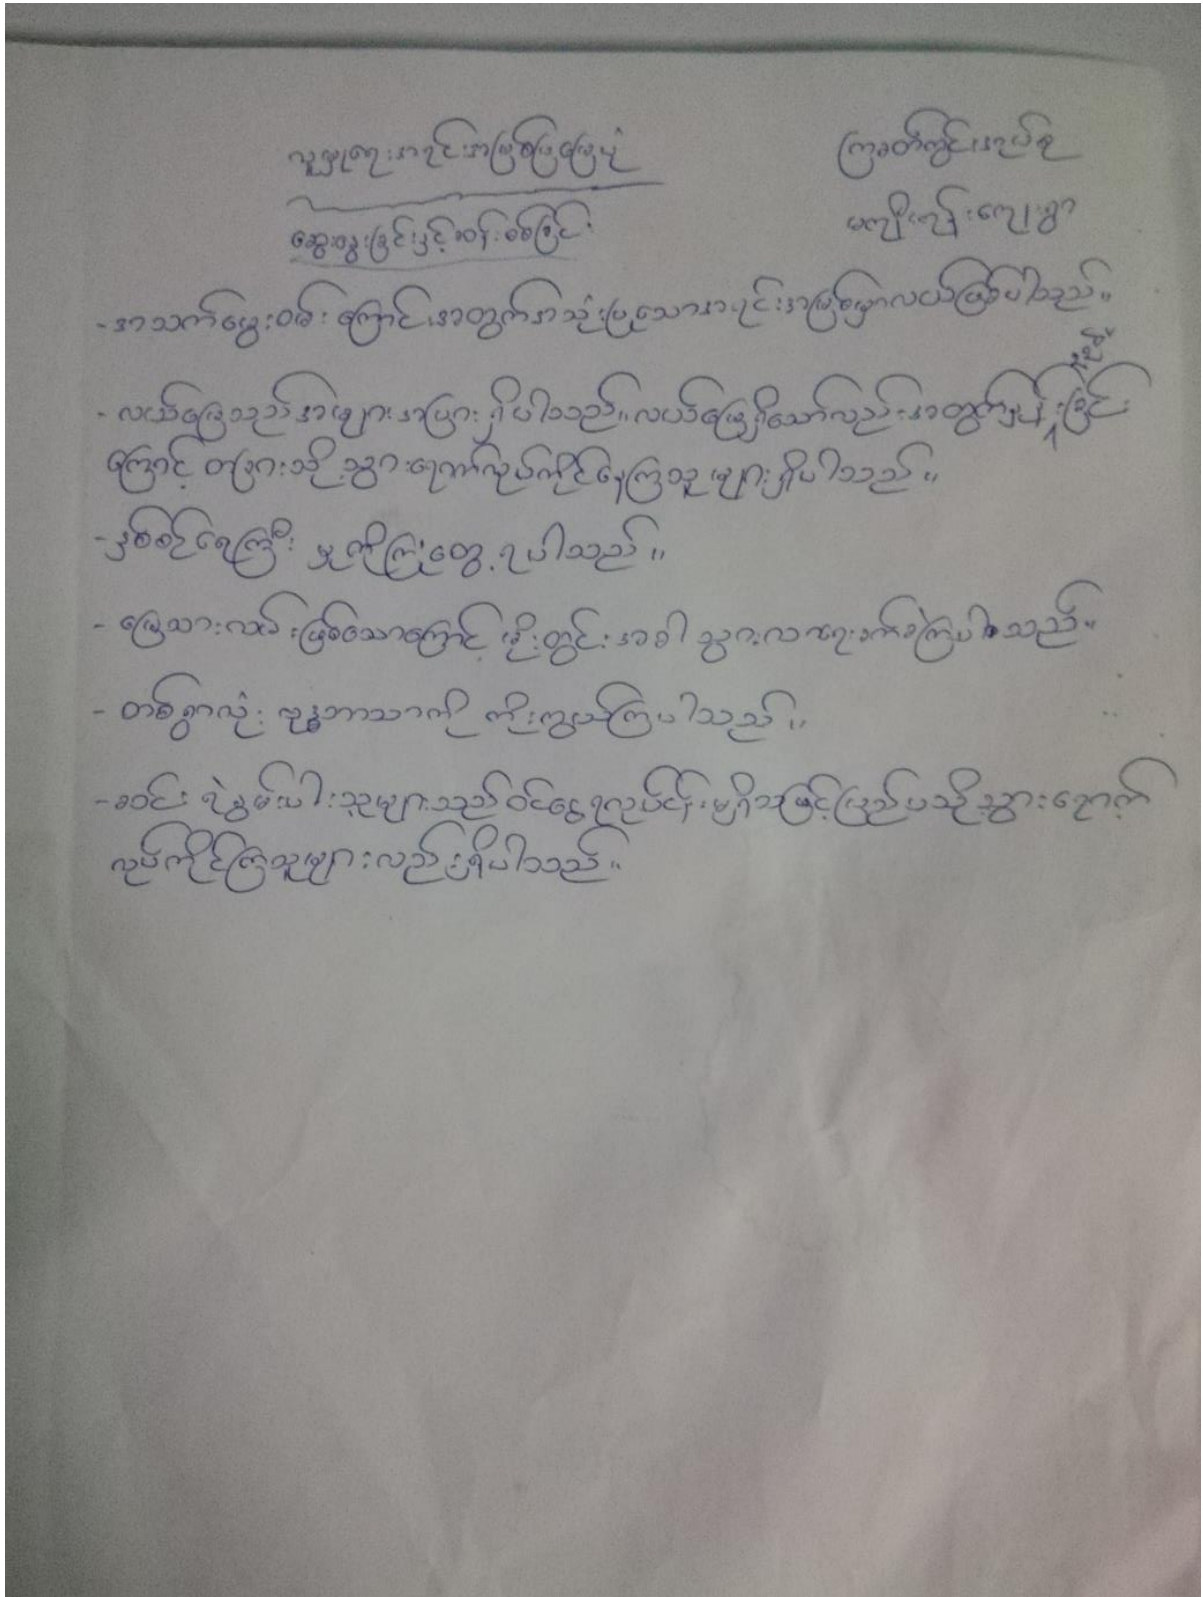 လူမှုရေးအရင်းအမြစ်ပြမြေပုံ
ကြခတ်ကွင်းအုပ်စု
ဆွေးနွေးခြင်းနှင့်စစ်ခြင်း
မကျီးကုန်းကျေးရွာ
- အသက်မွေးဝမ်းကြောင်းအတွက်အသုံးပြုသောအရင်းအမြစ်မှာလယ်ဖြစ်ပါသည်။
- လယ်မြေသည်အများအပြားရှိပါသည်။လယ်မြေရှိသော်လည်းအတွက်ရှုံးခြင်း
ကြောင့် တခြားသို့သွားရောက်လုပ်ကိုင်နေကြသူများရှိပါသည်။
- နှစ်စဉ်ရေကြီးမှုကိုကြုံတွေ့ရပါသည်။
- မြေသားလမ်းဖြစ်သောကြောင့် မိုးတွင်းအခါ သွားလာရေးခက်ခဲကြပါသည်။
- တစ်ရွာလုံး ဗုဒ္ဓဘာသာကို ကိုးကွယ်ကြပါသည်။
- ခဝင်း ရဲနွမ်းပါးသူများသည်ဝင်ငွေရလုပ်ငန်းမရှိသဖြင့်ပြည်ပသို့သွားရောက်
လုပ်ကိုင်ကြသူများလည်းရှိပါသည်။